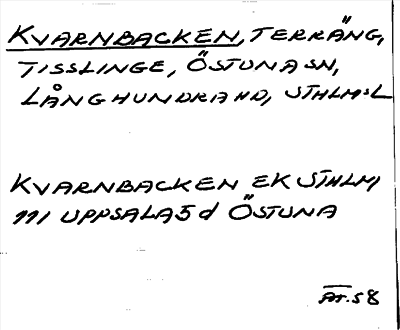 KVARNBACKEN, TERRÄNG,
TISSLINGE, ÖSTUNA SN,
LÅNGHUNDRA HD, STHLMS:L
KVARNBACKEN EK STHLM
111 UPPSALA 5 d ÖSTUNA
ÄT.58